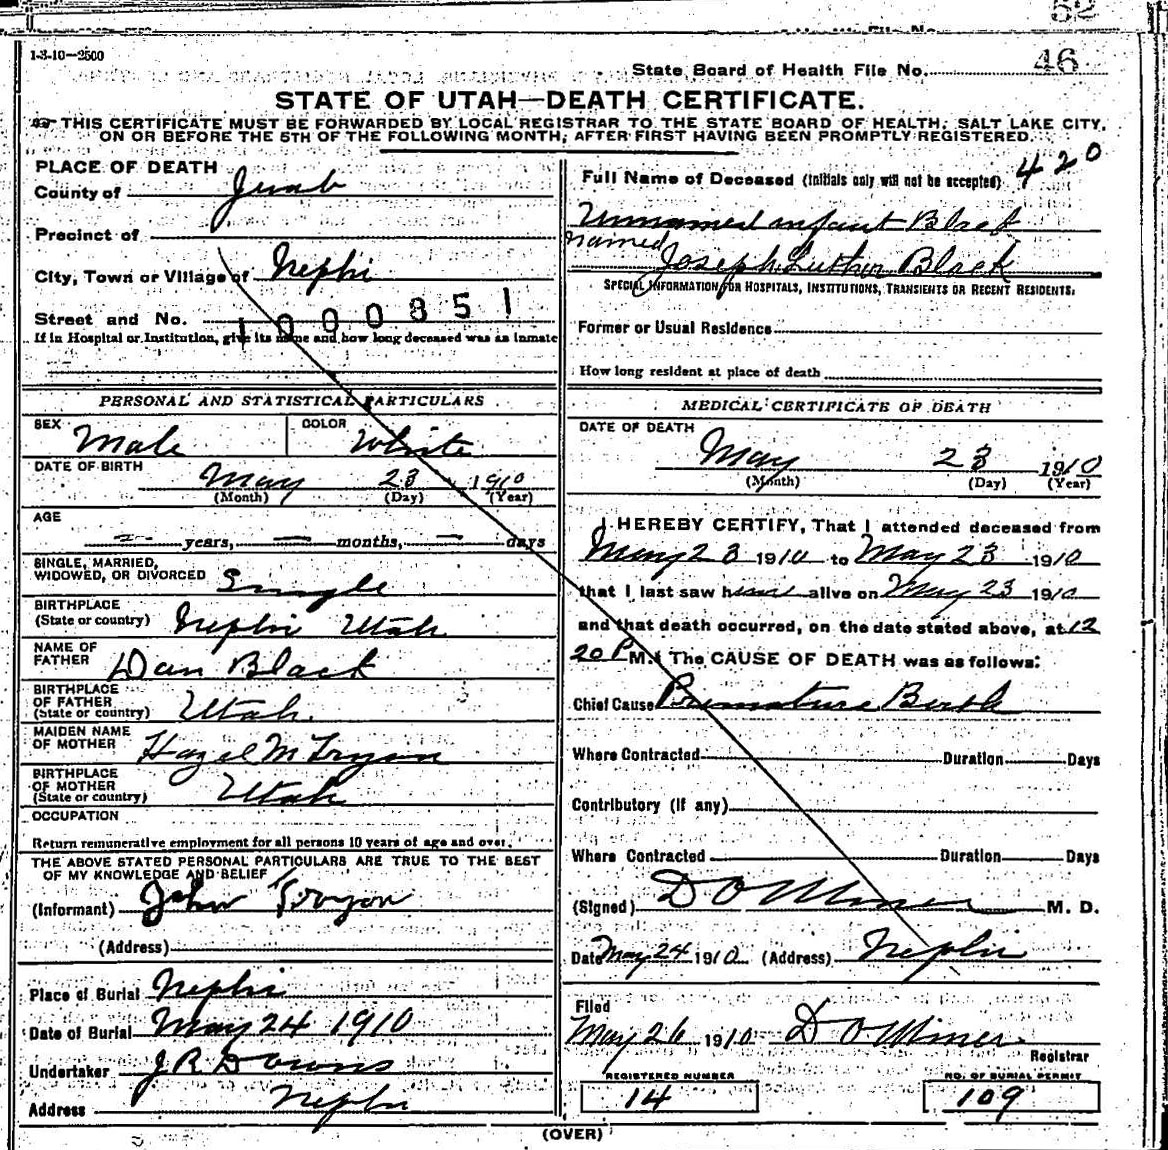 52
1-3-10—2500
State Board of Health File No. 46
STATE OF UTAH—DEATH CERTIFICATE.
THIS CERTIFICATE MUST BE FORWARDED BY LOCAL REGISTRAR TO THE STATE BOARD OF HEALTH, SALT LAKE CITY,
ON OR BEFORE THE 5TH OF THE FOLLOWING MONTH, AFTER FIRST HAVING BEEN PROMPTLY REGISTERED.
PLACE OF DEATH
County of Juab
Precinct of
City, Town or Village of Nephi
Street and No.
1000851
If in Hospital or Institution, give its name and how long deceased was an inmate
PERSONAL AND STATISTICAL PARTICULARS
SEX Male COLOR White
DATE OF BIRTH May 23 1910
(Month) (Day) (Year)
AGE — years, — months, — days
SINGLE, MARRIED,
WIDOWED, OR DIVORCED Single
BIRTHPLACE
(State or country) Nephi Utah
NAME OF
FATHER Dan Black
BIRTHPLACE
OF FATHER
(State or country) Utah.
MAIDEN NAME
OF MOTHER Hazel M Tryon
BIRTHPLACE
OF MOTHER
(State or country) Utah
OCCUPATION
Return remunerative employment for all persons 10 years of age and over.
THE ABOVE STATED PERSONAL PARTICULARS ARE TRUE TO THE BEST
OF MY KNOWLEDGE AND BELIEF
(Informant) John Tryon
(Address)
Place of Burial Nephi
Date of Burial May 24 1910
Undertaker J R Downs
Address Nephi
420
Full Name of Deceased (Initials only will not be accepted)
Unnamed infant Black
named Joseph Luther Black
SPECIAL INFORMATION FOR HOSPITALS, INSTITUTIONS, TRANSIENTS OR RECENT RESIDENTS.
Former or Usual Residence
How long resident at place of death
MEDICAL CERTIFICATE OF DEATH
DATE OF DEATH
May 23 1910
(Month) (Day) (Year)
I HEREBY CERTIFY, That I attended deceased from
May 23 1910 to May 23 1910
that I last saw him alive on May 23 1910
and that death occurred, on the date stated above, at 12
20 P M. The CAUSE OF DEATH was as follows:
Chief Cause Premature Birth
Where Contracted Duration Days
Contributory (if any)
Where Contracted Duration Days
(Signed) D O Miner M. D.
Date May 24 1910 (Address) Nephi
Filed
May 26 1910 D O Miner
Registrar
REGISTERED NUMBER NO. OF BURIAL PERMIT
14 109
(OVER)